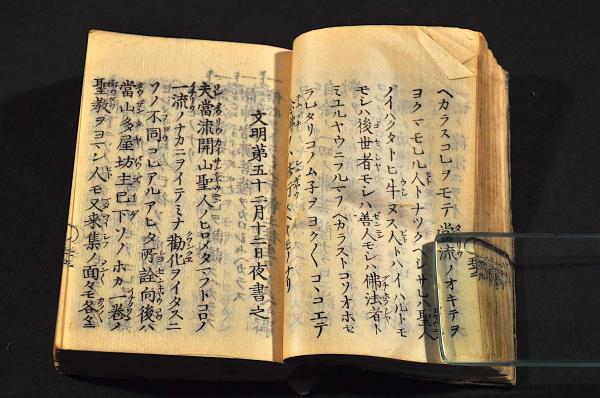 ヘカラスコレヲモテ當流ノオキテヲ
ヨクマモレル人トナツクヘシサレハ聖人
ノイハクタトヒ牛ヌス人トハイハルトモ
モシハ後世者モシハ善人モシハ佛法者ト
ミユルヤウニフルマフヘカラストコソオホセ
ラレタリコノム子ヲヨク〱コヽロエテ
行スヘキモノナリ
文明第五十二月十二日夜書之
夫當流開山聖人ノヒロメタマフトコロノ
一流ノナカニヲイテミナ勧化ヲイタスニ
ソノ不同コレアルアヒタ所詮向後ハ
當山多屋坊主已下ソノホカ一巻ノ
聖教ヲヨマン人モ又来集ノ面々モ各々